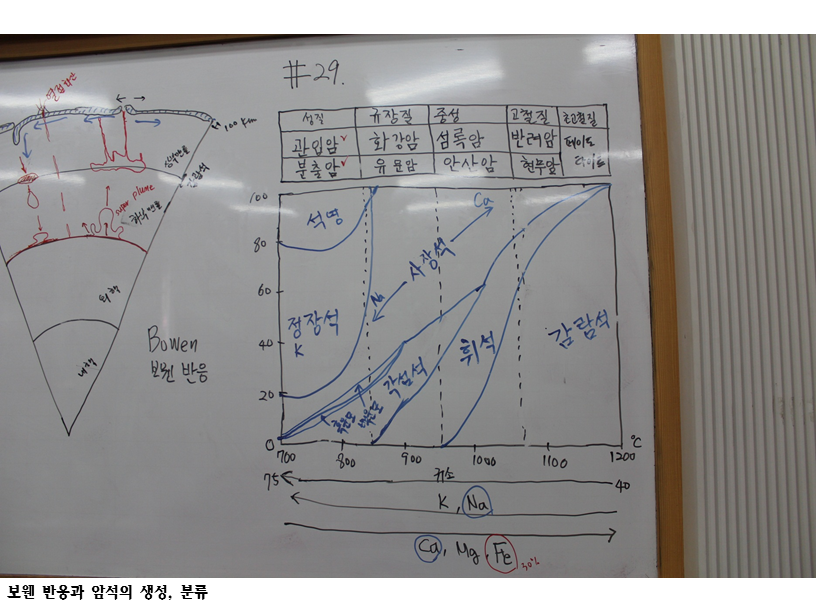 #29.
성질 규장질 중성 고철질 초고철질
관입암 화강암 섬록암 반려암 페이도
분출암 유문암 안산암 현무암 타이트
열점화산
100 km
super plume
외핵
내핵
Bowen
보웬 반응
100
80
60
40
20
0
석영
정장석
K
Ca
사장석
Na
흑운모
백운모
각섬석
휘석
감람석
700 800 900 1000 1100 1200 ℃
75 규소 40
K, Na
Ca, Mg, Fe
30%
보웬 반응과 암석의 생성, 분류